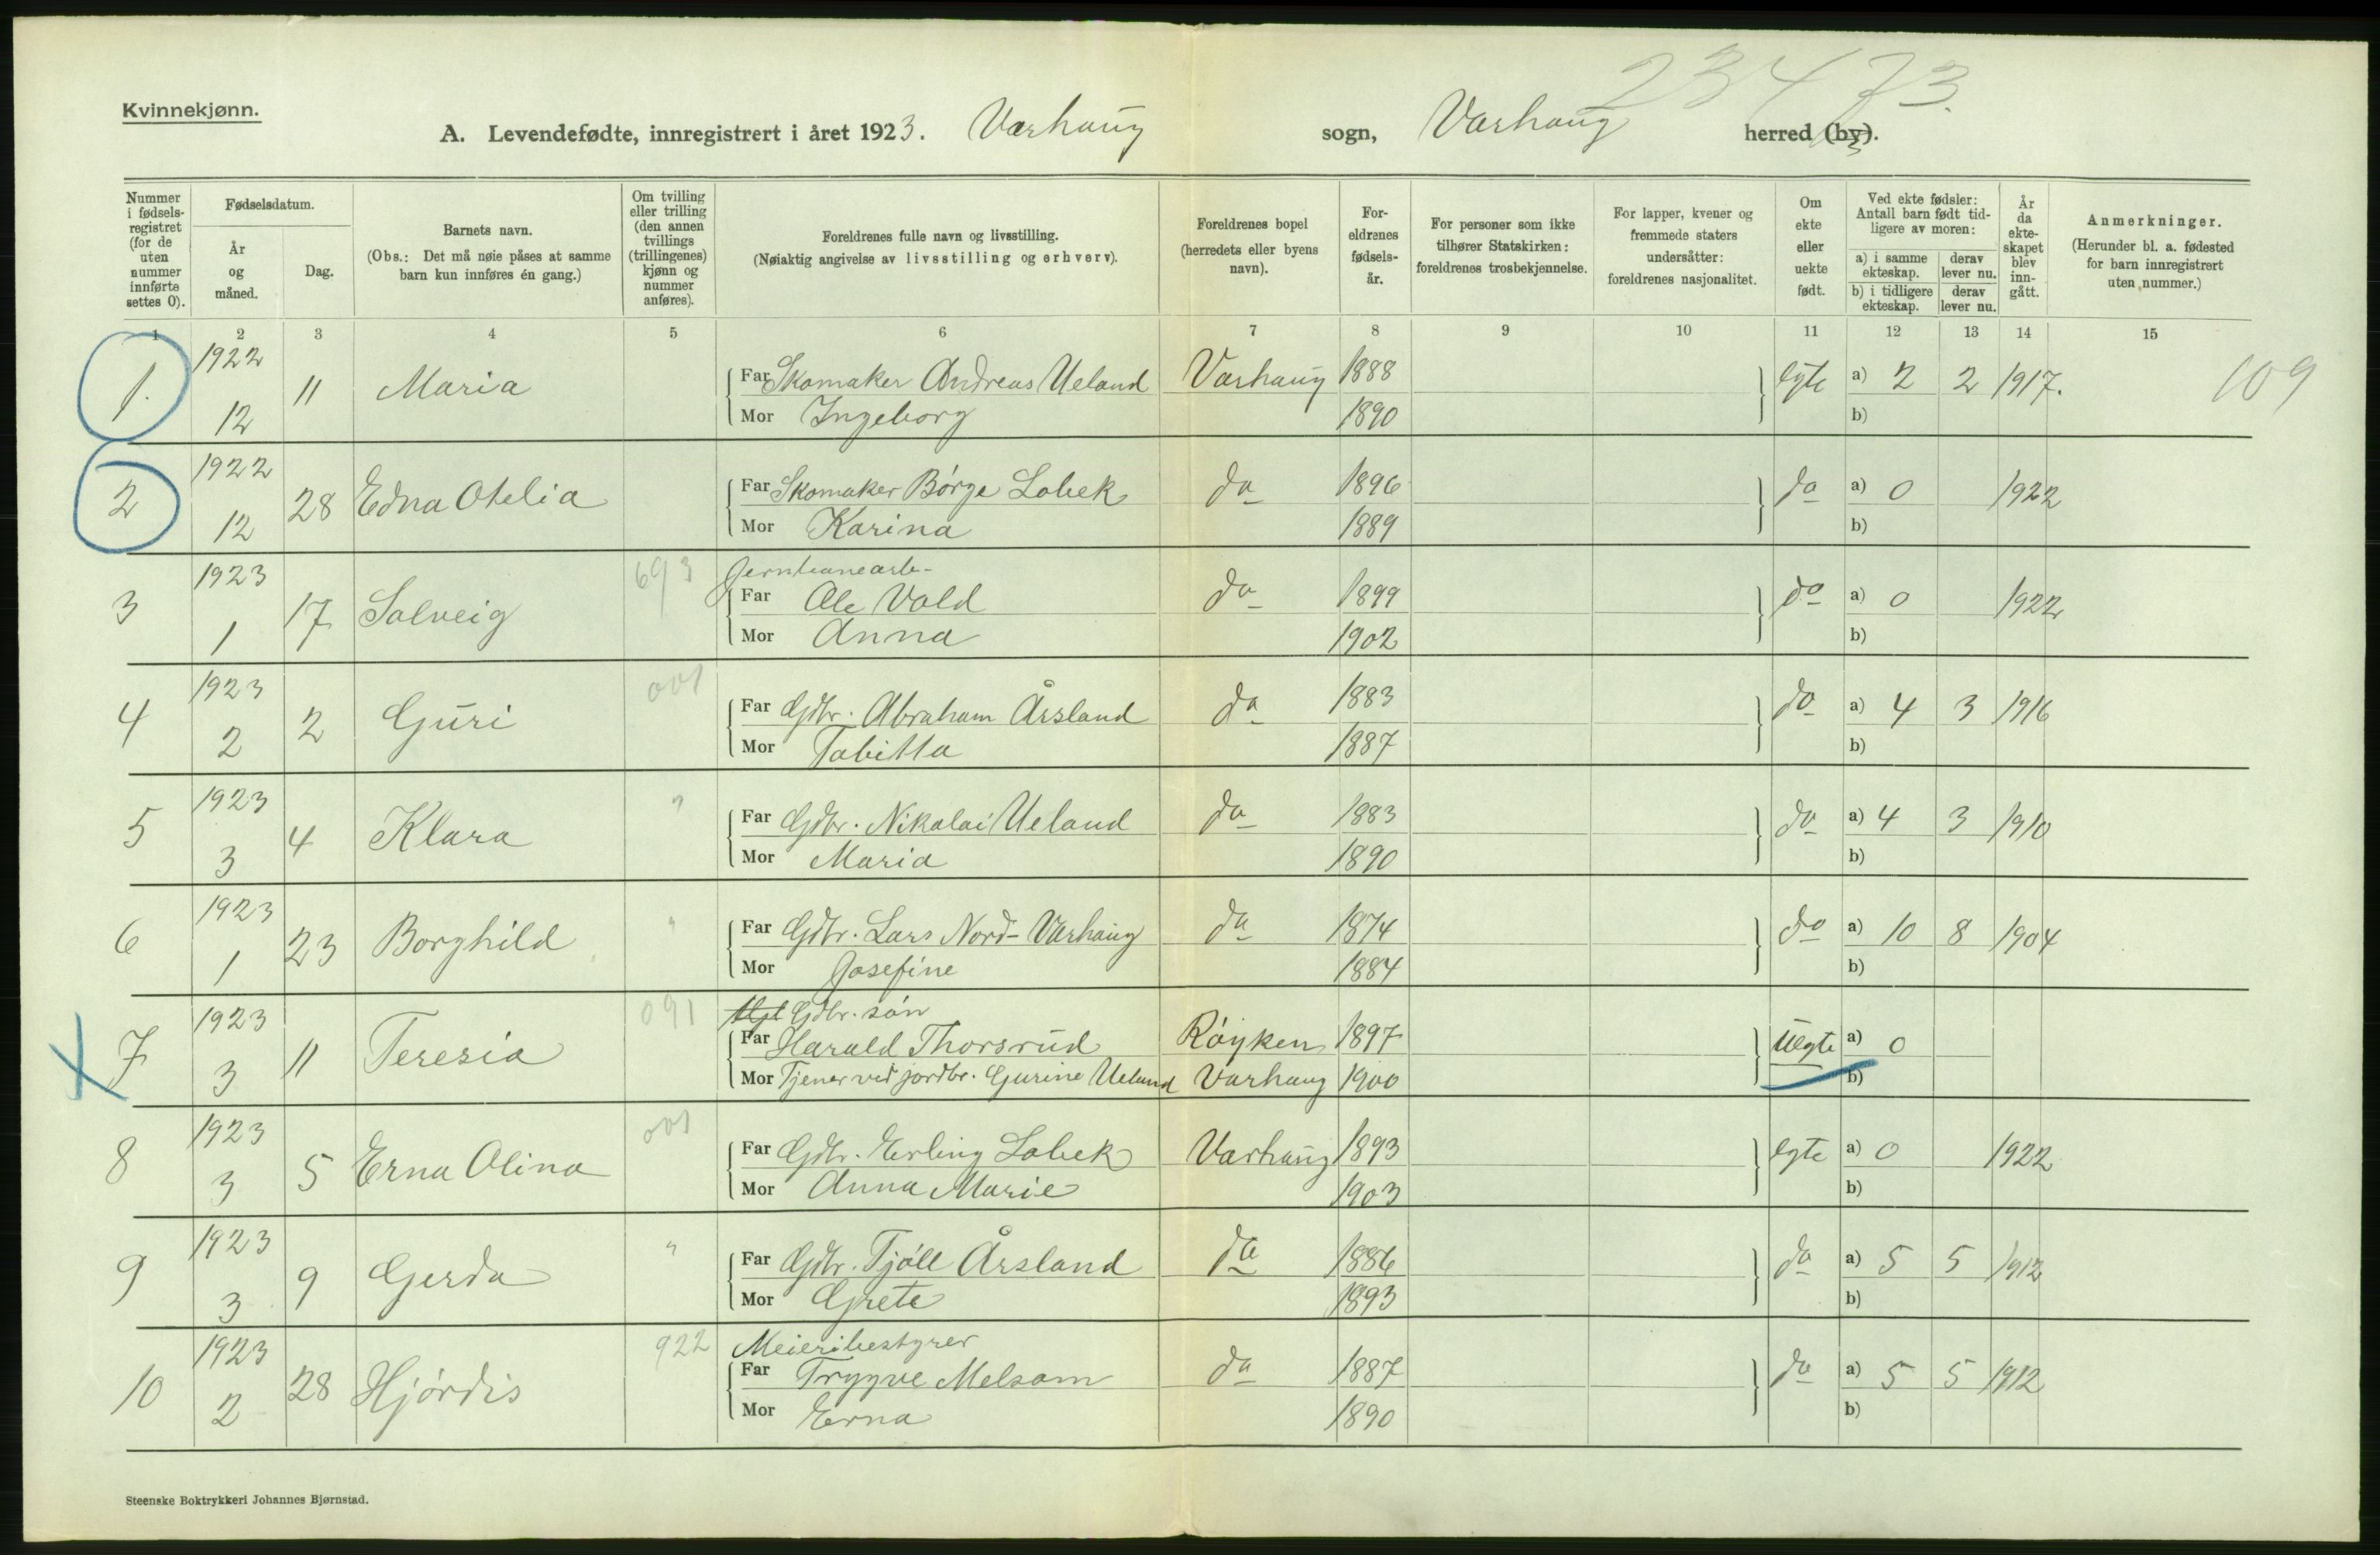 23473.
Kvinnekjønn.
A. Levendefødte, innregistrert i året 1923. Varhaug sogn, Varhaug herred (by).
Nummer i fødsels-registret (for de uten nummer innførte settes 0).
Fødselsdatum.
År og måned.
Dag.
Barnets navn.
(Obs.: Det må nøie påses at samme barn kun innføres én gang.)
Om tvilling eller trilling (den annen tvillings (trillingenes) kjønn og nummer anføres).
Foreldrenes fulle navn og livsstilling.
(Nøiaktig angivelse av livsstilling og erhverv).
Foreldrenes bopel
(herredets eller byens navn).
For-eldrenes fødsels-år.
For personer som ikke tilhører Statskirken: foreldrenes trosbekjennelse.
For lapper, kvener og fremmede staters undersåtter: foreldrenes nasjonalitet.
Om ekte eller uekte født.
Ved ekte fødsler: Antall barn født tid-ligere av moren:
a) i samme ekteskap.
derav lever nu.
b) i tidligere ekteskap.
derav lever nu.
År da ekte-skapet blev inn-gått.
Anmerkninger.
(Herunder bl. a. fødested for barn innregistrert uten nummer.)
1 2 3 4 5 6 7 8 9 10 11 12 13 14 15
1. 1922 12 11 Maria Far Skomaker Andreas Ueland Varhaug 1888 egte a) 2 2 1917. 109
Mor Ingeborg 1890 b)
2 1922 12 28 Edna Otelia Far Skomaker Börge Lobek do 1896 do a) 0 1922
Mor Karina 1889 b)
3 1923 1 17 Solveig 693 Jernbanearb-
Far Ole Vold do 1899 do a) 0 1922
Mor Anna 1902 b)
4 1923 2 2 Guri 001 Far Gdbr. Abraham Årsland do 1883 do a) 4 3 1916
Mor Tabitta 1887 b)
5 1923 3 4 Klara " Far Gdbr. Nikolai Ueland do 1883 do a) 4 3 1910
Mor Maria 1890 b)
6 1923 1 23 Borghild " Far Gdbr. Lars Nord-Varhaug do 1874 do a) 10 8 1904
Mor Josefine 1884 b)
7 1923 3 11 Teresia 091 Gdbr. sön
Far Harald Thorsrud Röyken 1897 Uegte a) 0
Mor Tjener ved jordbr. Gurine Ueland Varhaug 1900 b)
8 1923 3 5 Erna Olina 001 Far Gdbr. Erling Lobek Varhaug 1893 egte a) 0 1922
Mor Anna Marie 1903 b)
9 1923 3 9 Gerda " Far Gdbr. Tjöll Årsland do 1886 do a) 5 5 1912
Mor Grete 1893 b)
10 1923 2 28 Hjördis 922 Meieribestyrer
Far Trygve Melsom do 1887 do a) 5 5 1912
Mor Erna 1890 b)
Steenske Boktrykkeri Johannes Bjørnstad.